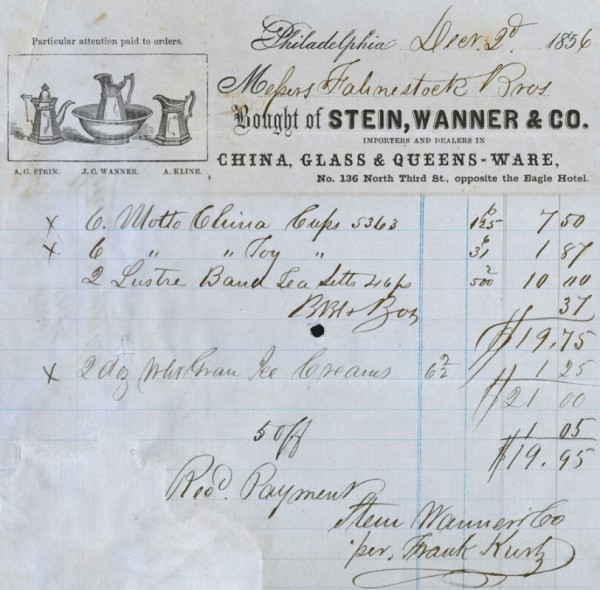 Particular attention paid to orders.
Philadelphia Decr. 2d 1856
Messrs Fahnestock Bros
Bought of STEIN, WANNER & CO.
IMPORTERS AND DEALERS IN
CHINA, GLASS & QUEENS-WARE,
No. 136 North Third St., opposite the Eagle Hotel.
A. G. STEIN. J. C. WANNER. A. KLINE.
x 6. Motto China Cups 5363 125 7 50
x 6 " " Toy " 31 1 87
2 Lustre Band Tea Setts 46ps 500 10 00
& Box 37
$19.75
x 2 dz Gran Ice Creams 62 1 25
21 00
5 off 1 05
$19.95
Recd. Payment
Stein Wanner & Co
per. Frank Kurtz